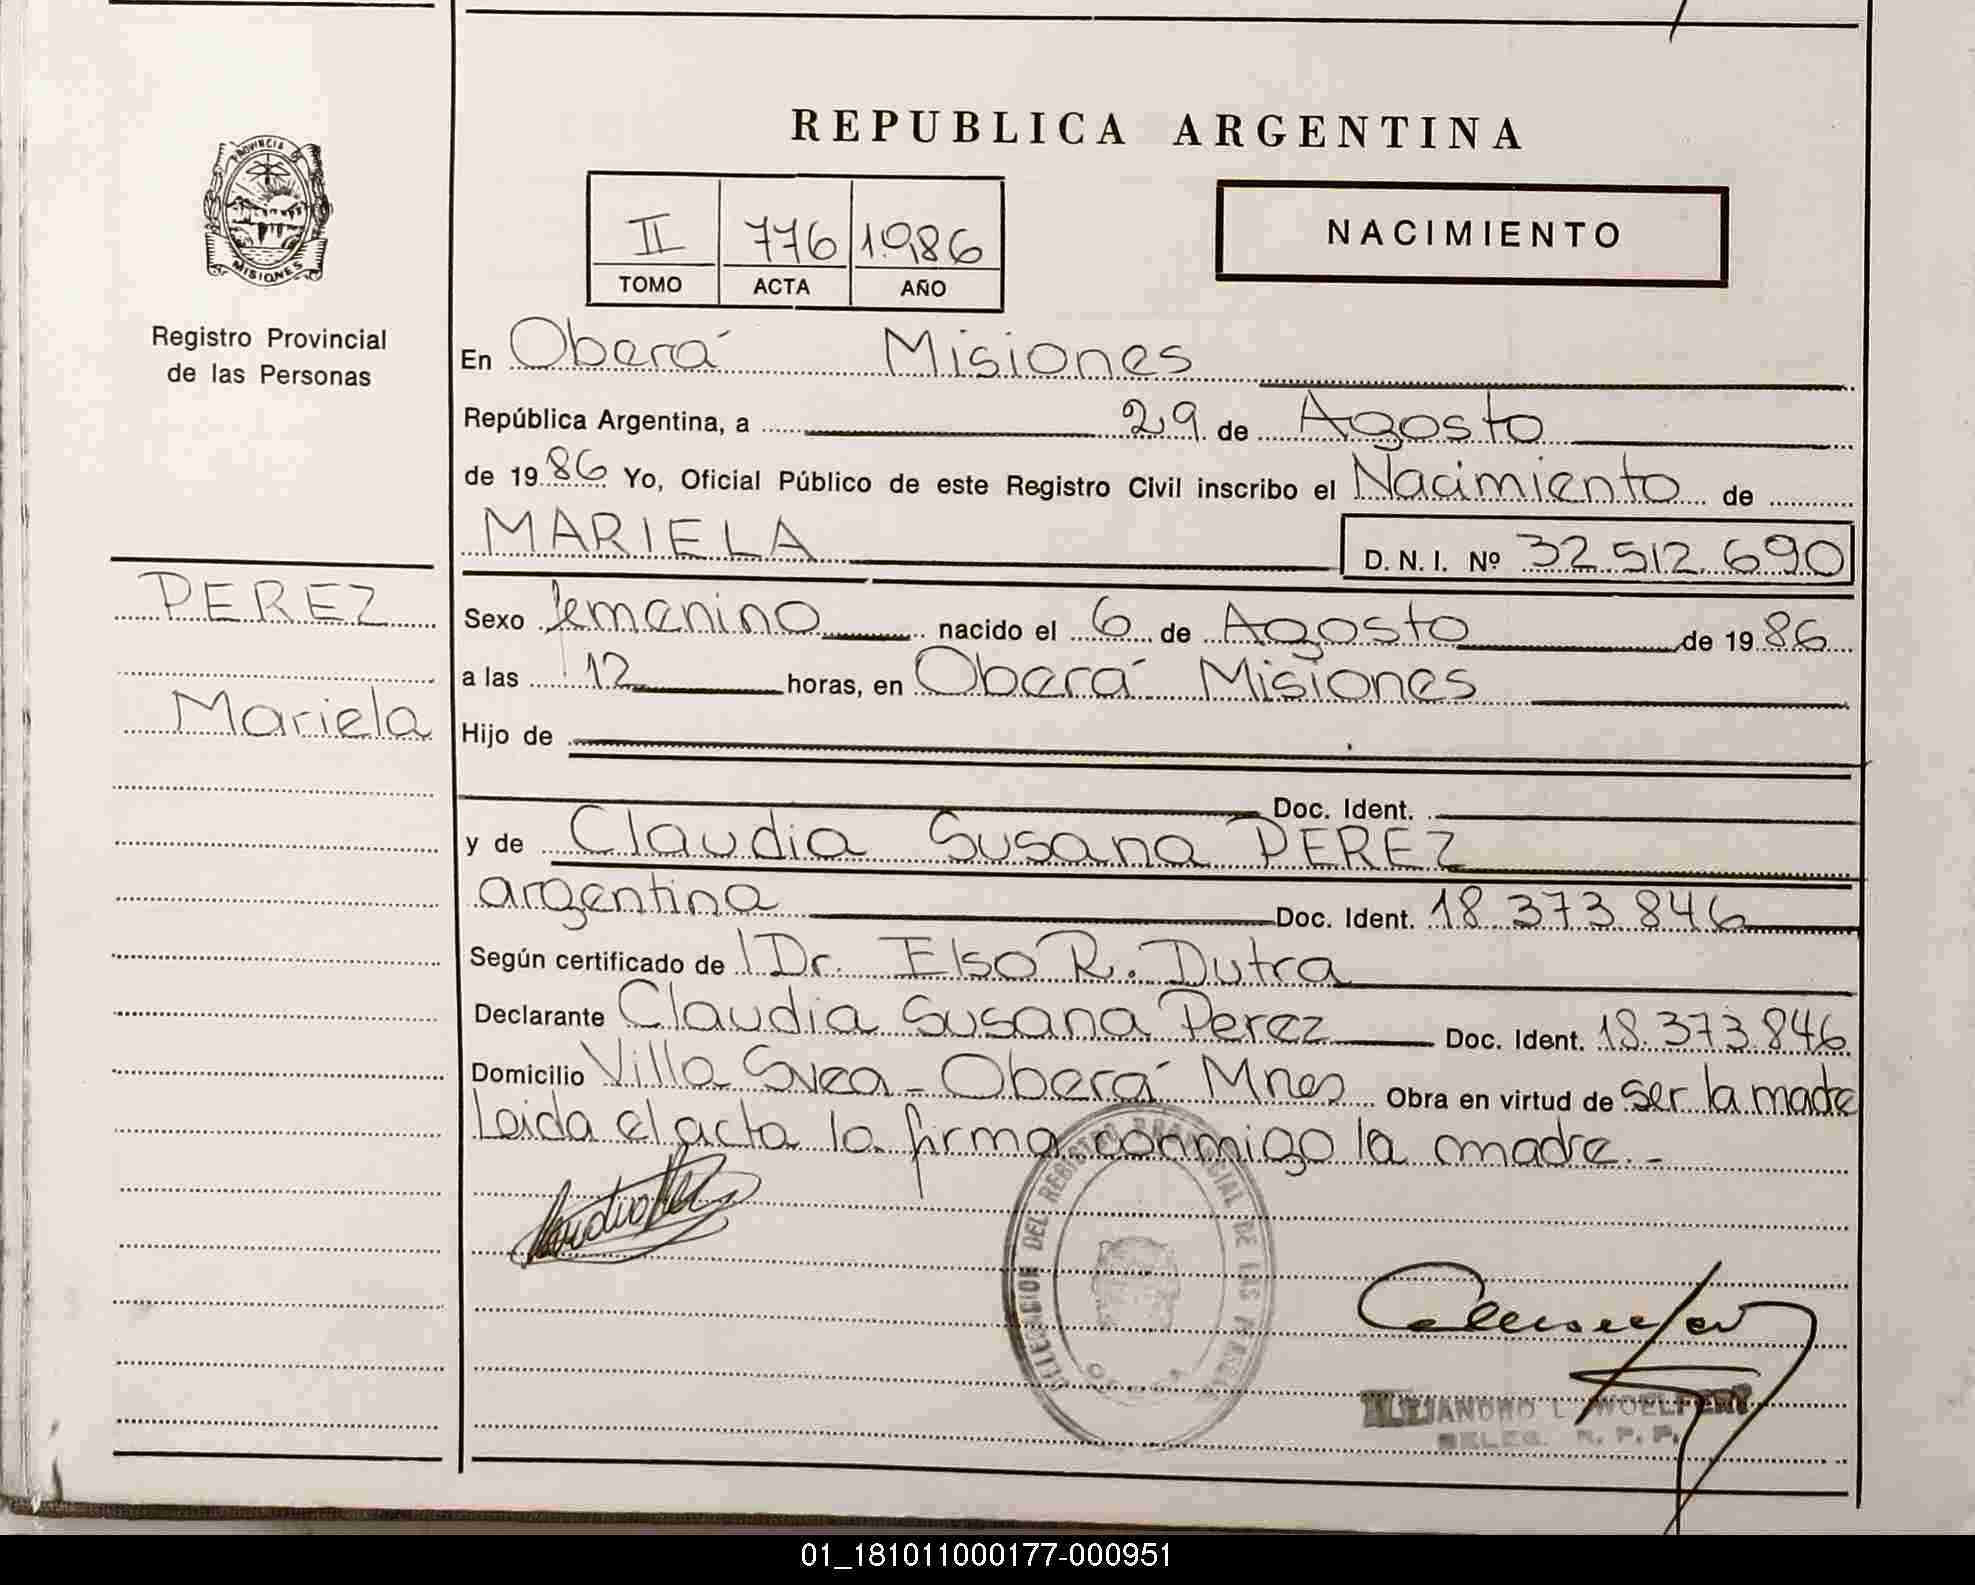 REPUBLICA ARGENTINA
PROVINCIA DE
MISIONES
II 776 1.986
TOMO ACTA AÑO
NACIMIENTO
Registro Provincial
de las Personas
PEREZ
Mariela
En Oberá Misiones
República Argentina, a 29 de Agosto
de 1986 Yo, Oficial Público de este Registro Civil inscribo el Nacimiento de
MARIELA D. N. I. Nº 32.512.690
Sexo femenino nacido el 6 de Agosto de 1986
a las 12 horas, en Oberá Misiones
Hijo de
Doc. Ident.
y de Claudia Susana PEREZ
argentina Doc. Ident. 18.373.846
Según certificado de Dr. Elso R. Dutra
Declarante Claudia Susana Perez Doc. Ident. 18.373.846
Domicilio Villa Svea - Oberá Mnes Obra en virtud de ser la madre
Leida el acta la firma conmigo la madre.-
DELEGACION DEL REGISTRO PROVINCIAL DE LAS
ALEJANDRO L. WOELFERT
DELEG. R. P. P.
01_181011000177-000951